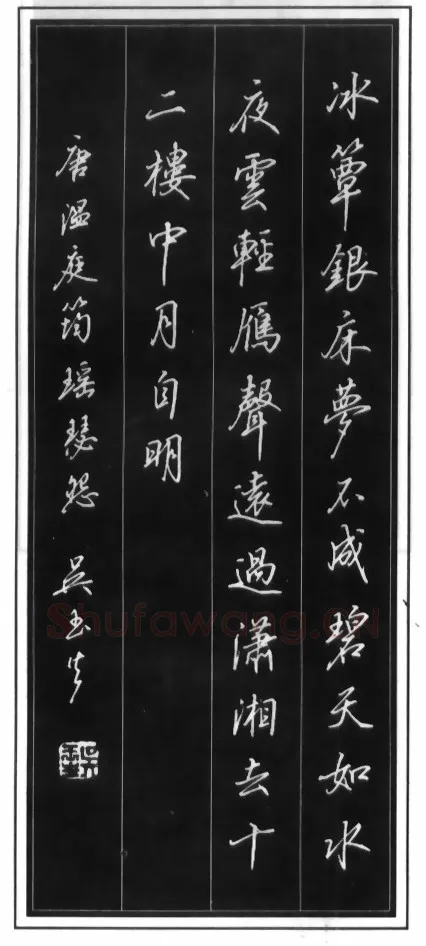 冰簟銀床夢不成碧天如水
夜雲輕鴈聲遠過瀟湘去十
二樓中月自明
唐温庭筠瑶瑟怨 吳玉生
Shufawang.CN